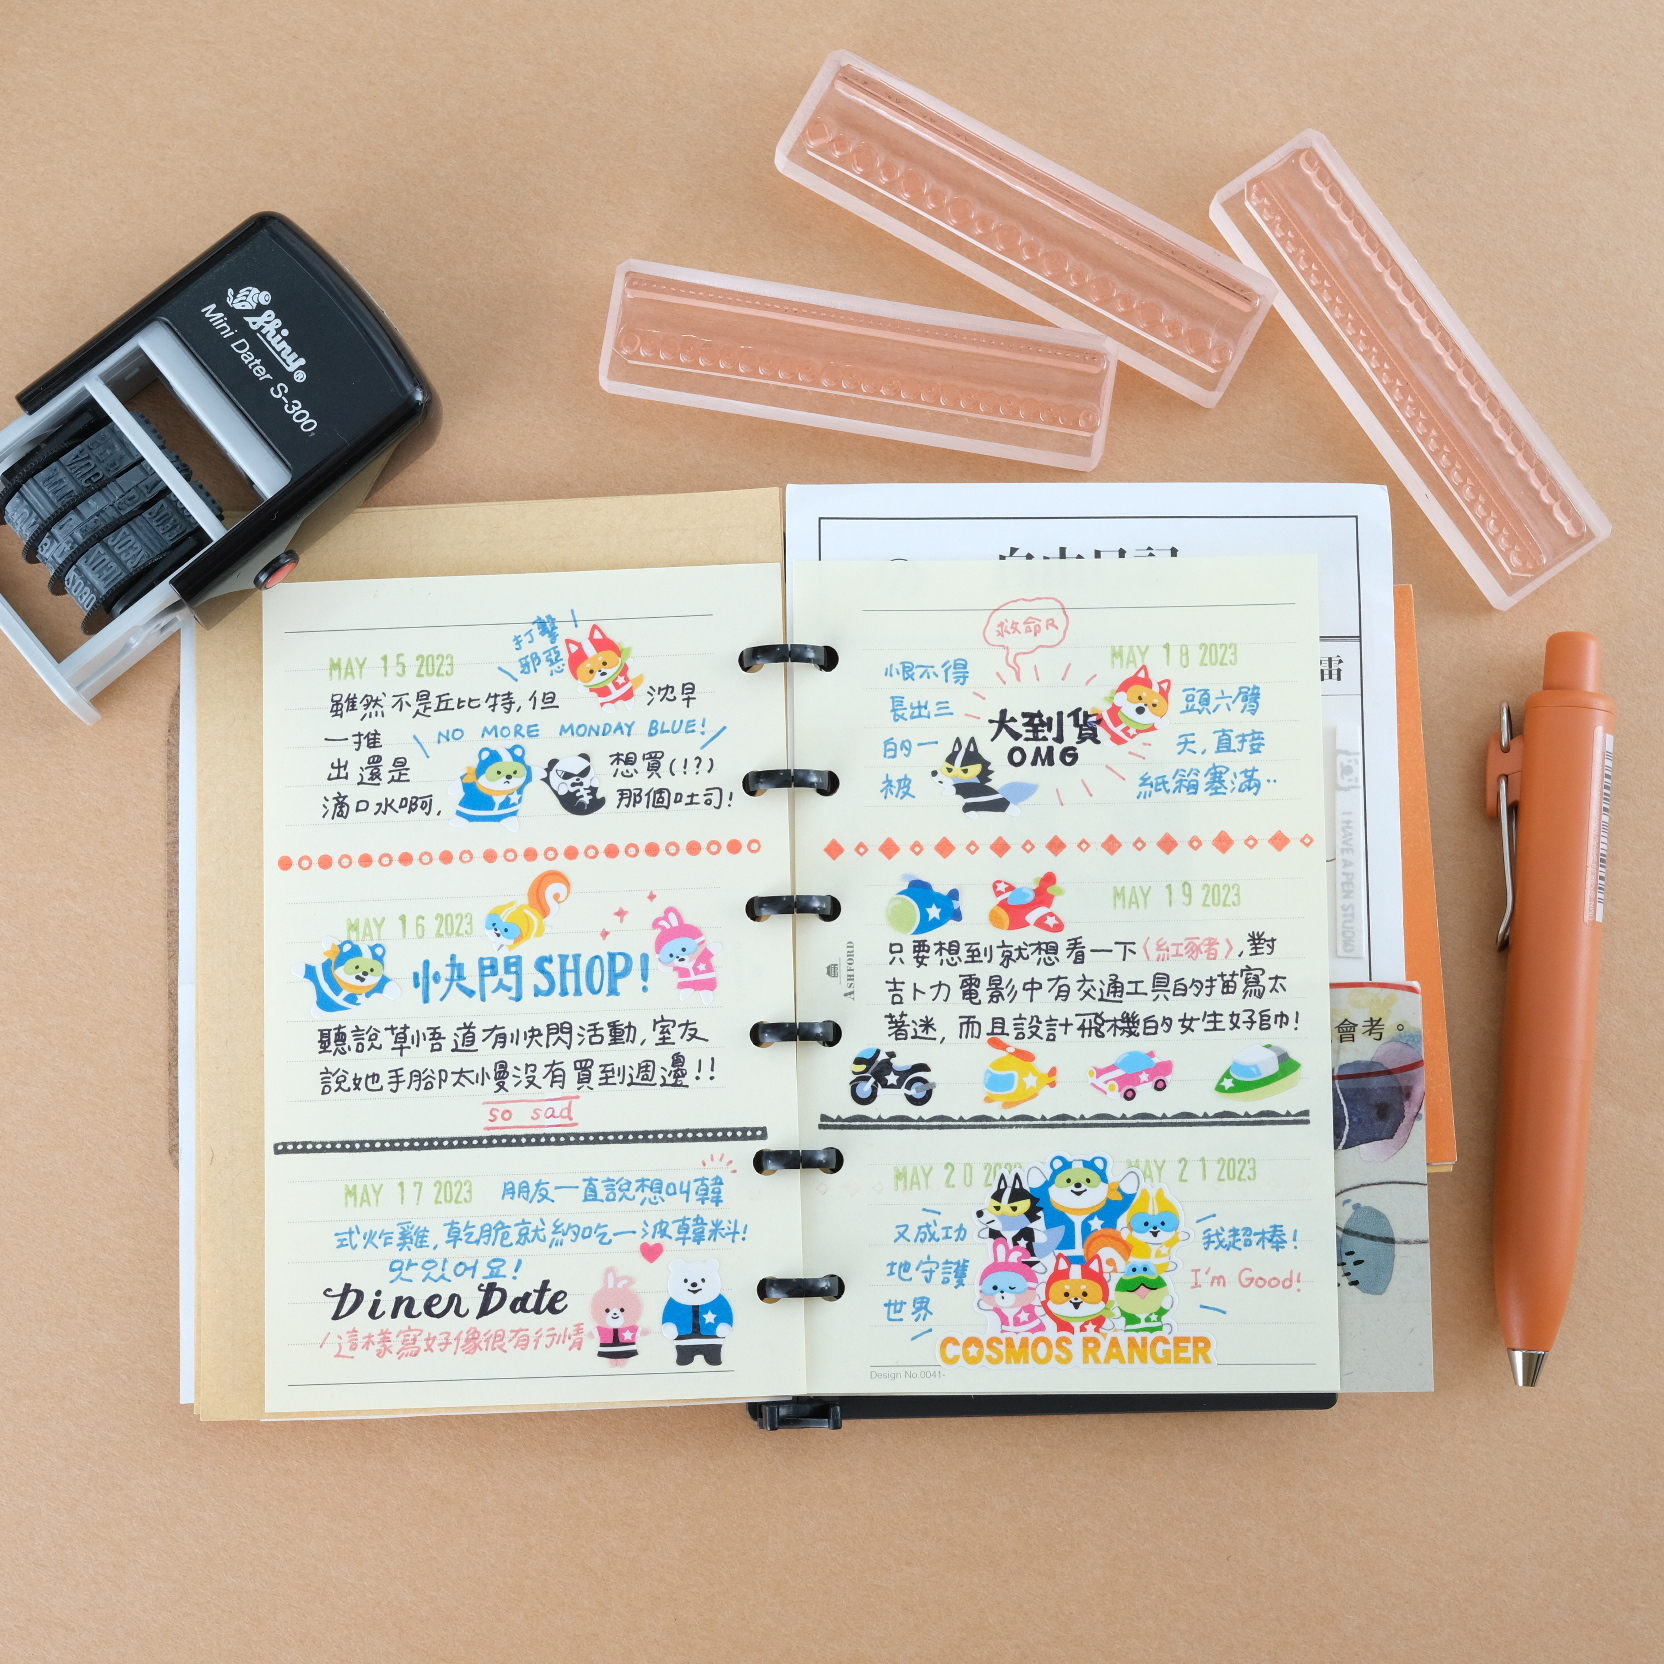 Shiny®
Mini Dater S-300
自由日記
雷
MAY 15 2023
打擊
邪惡
雖然不是丘比特,但
沈早
一推
NO MORE MONDAY BLUE!
出還是
想買(!?)
滴口水啊,
那個吐司!
MAY 16 2023
快閃SHOP!
聽說草悟道有快閃活動,室友
說她手腳太慢沒有買到週邊!!
so sad
MAY 17 2023
朋友一直說想叫韓
式炸雞,乾脆就約吃一波韓料!
맛있어요!
Diner Date
這樣寫好像很有行情
救命R
MAY 18 2023
恨不得
長出三
頭六臂
大到貨
OMG
的一
天,直接
被
紙箱塞滿..
MAY 19 2023
只要想到就想看一下〈紅豬〉,對
吉卜力電影中有交通工具的描寫太
著迷,而且設計飛機的女生好帥!
ASHFORD
MAY 20 2023
MAY 21 2023
又成功
地守護
世界
我超棒!
I'm Good!
COSMOS RANGER
Design No.0041-
I HAVE A PEN STUDIO
會考。